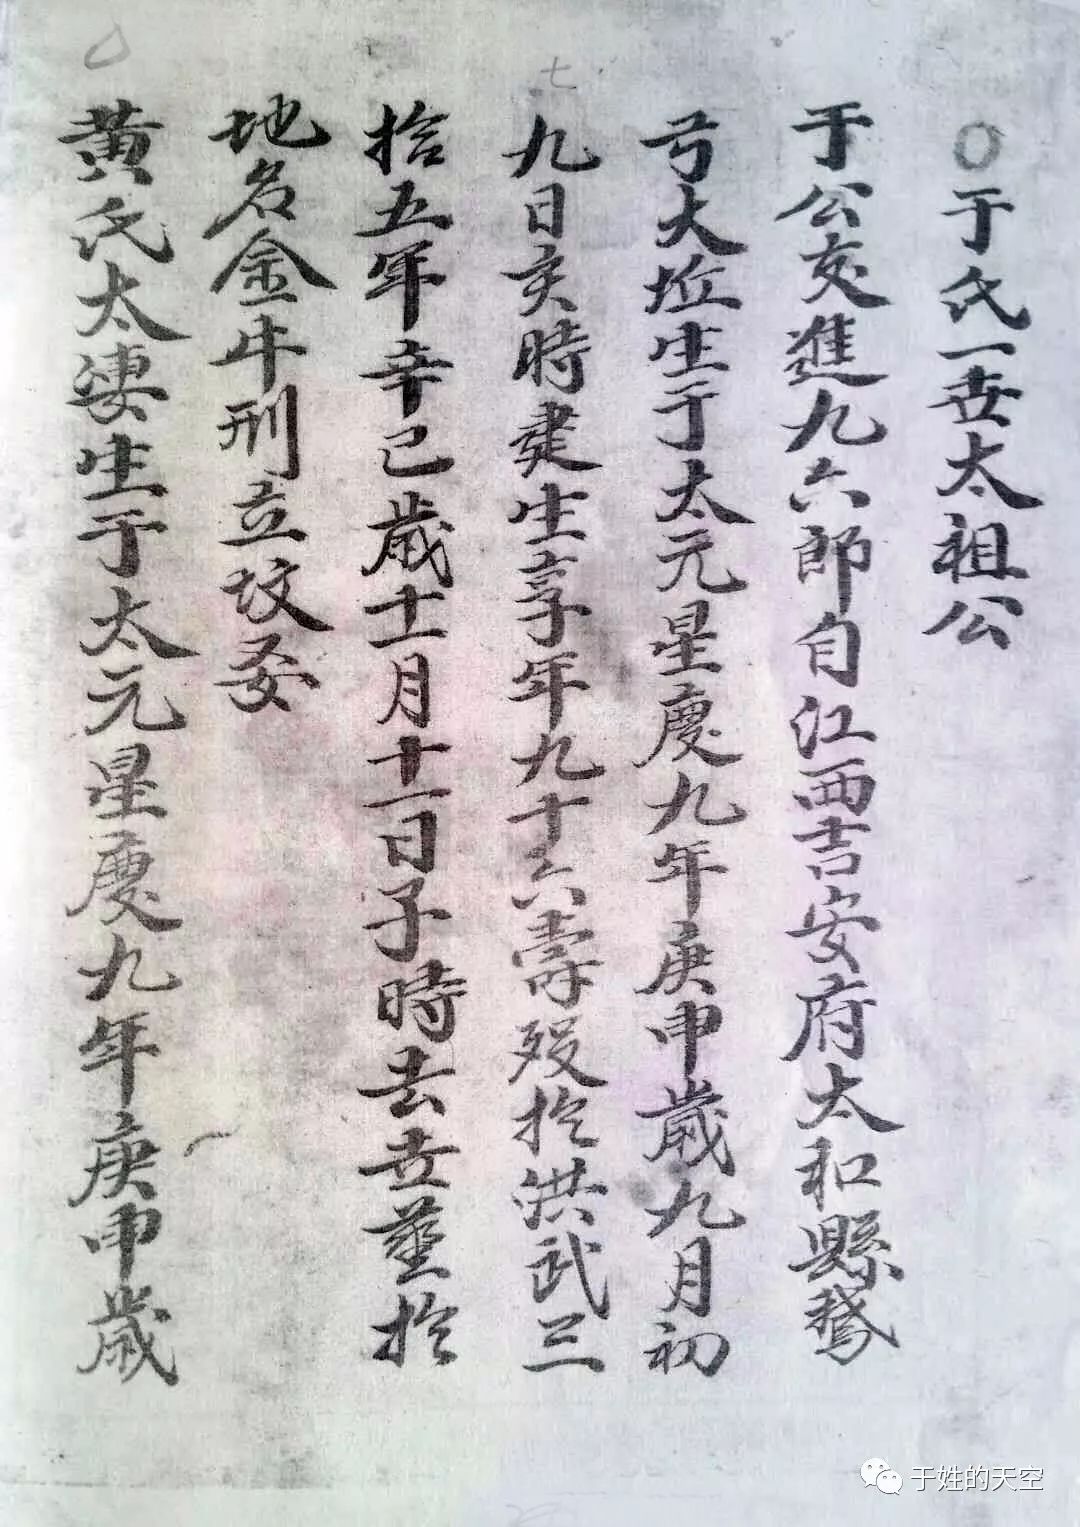 〇于氏一世太祖公
于公交進九六郎自江西吉安府太和縣鵝
大坵生于太元星慶九年庚申歲九月初
九日亥時建生享年九十六壽殁扵洪武三
拾五年辛巳歲十二月十二日子時去世塟扵
地名金牛刑立坟
黄氏太凄生于太元星慶九年庚申歲
七
于姓的天空